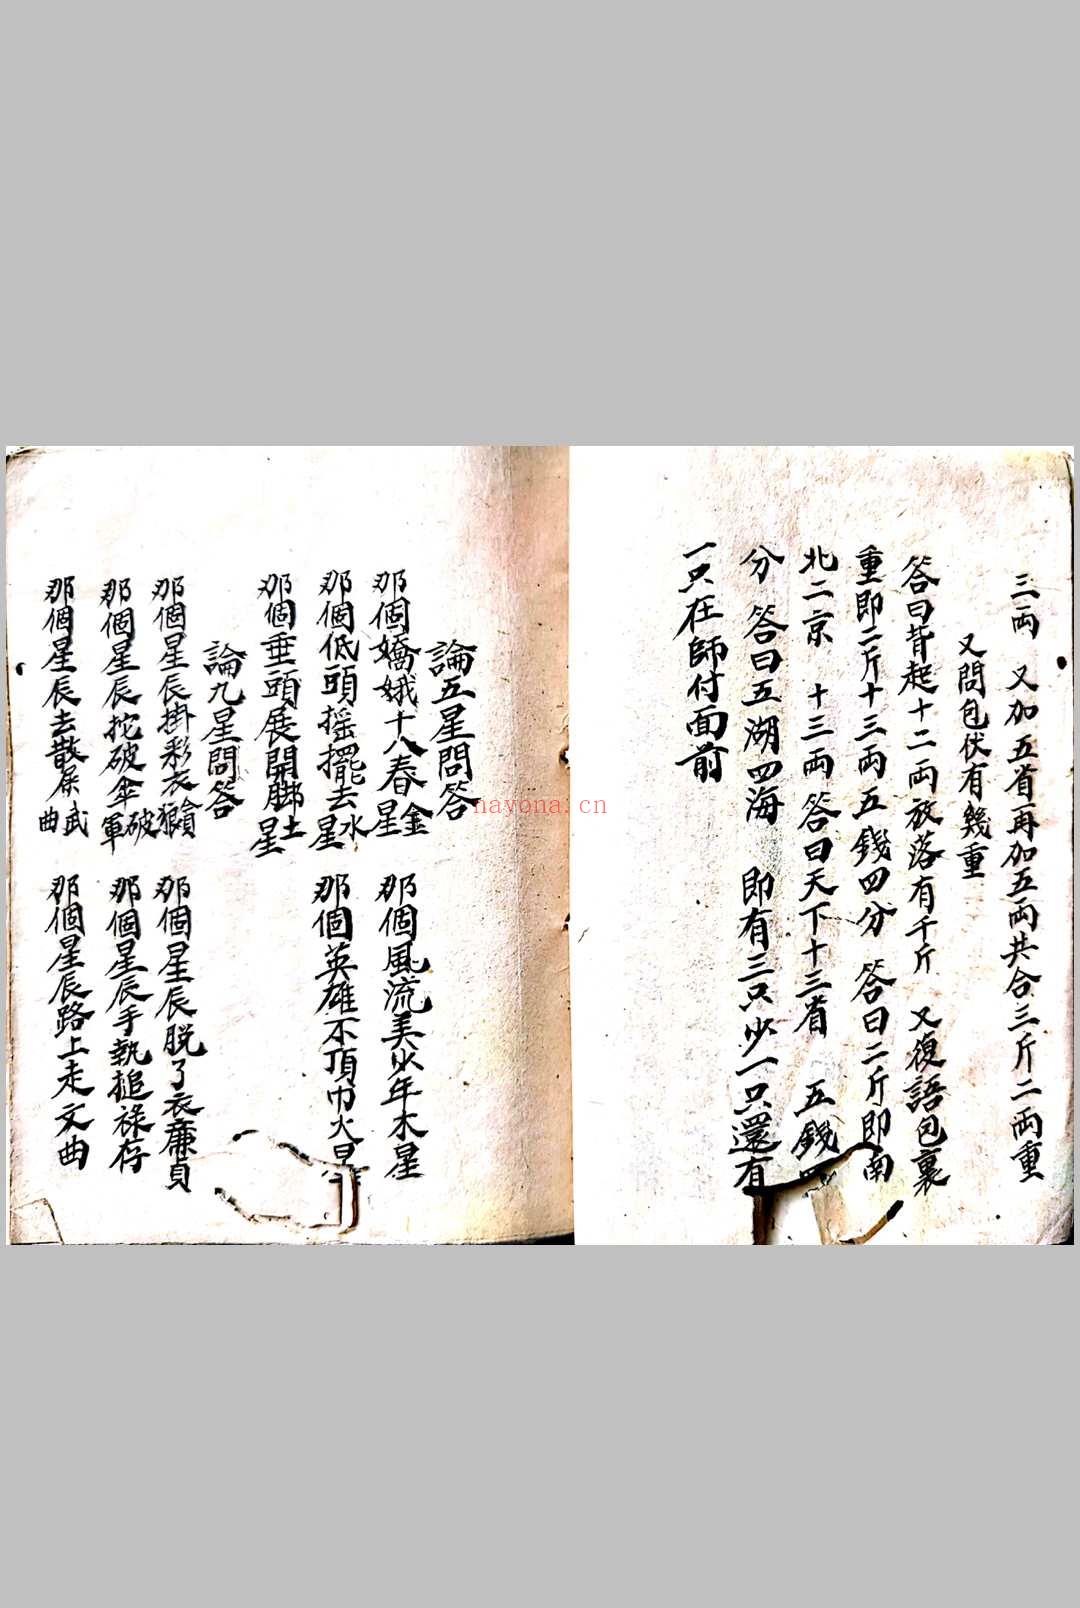 三両 又加五省再加五両共合三斤二両重
又問包伏有幾重
答曰背起十二両放落有千斤 又復語包裏
重即二斤十三両五錢四分 答曰二斤即南
北二京 十三両答曰天下十三省 五錢四
分 答曰五湖四海 即有三只少一只還有
一只在師付面前
論五星問答
那個嬌娥十八春金星 那個風流美少年木星
那個低頭摇擺去水星 那個英雄不頂巾火星
那個垂頭展開脚土星
論九星問答
那個星辰掛彩衣貪狼 那個星辰脱了衣廉貞
那個星辰挖破傘破軍 那個星辰手執搥禄存
那個星辰去散屎武曲 那個星辰路上走文曲
nayona.cn